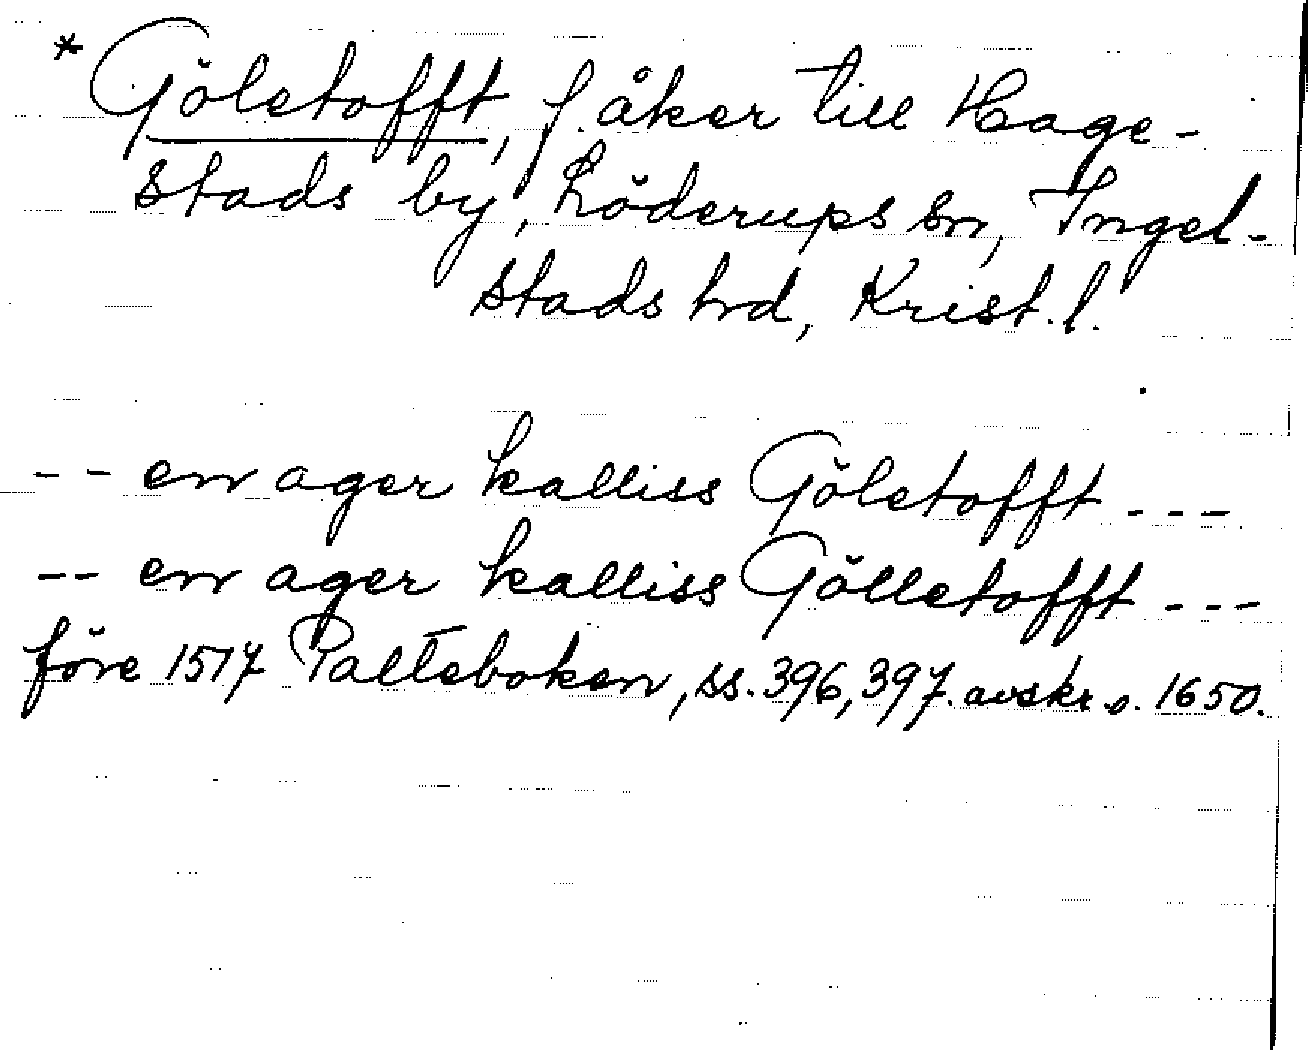 * Göletofft, f. åker till Hage-
stads by, Löderups sn, Ingel-
stads hrd, Krist. l.
-- en ager kalliss Göletofft ---
-- en ager kalliss Gölletofft ---
före 1517 Palteboken, ss. 396, 397. avskr. o. 1650.